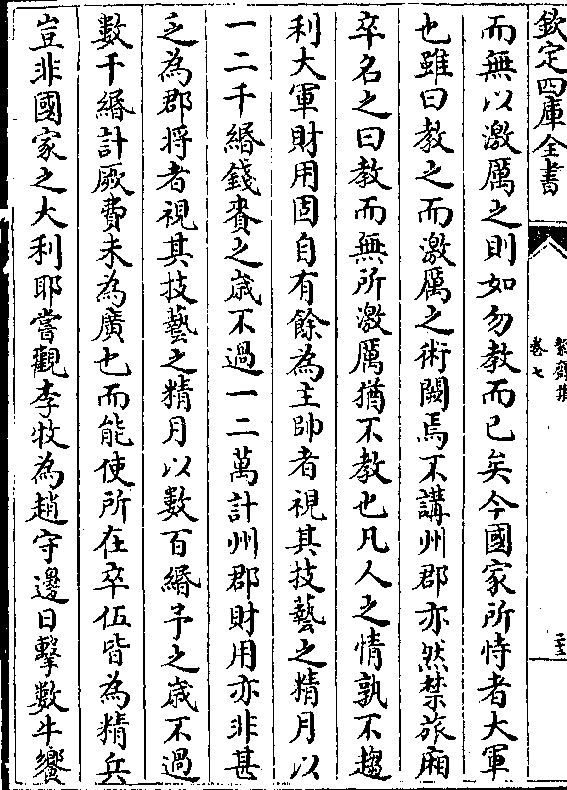 欽定四庫全書
卷七
而無以激厲之則如勿教而已矣今國家所恃者大軍
也雖曰教之而激厲之術闕焉不講州郡亦然禁旅廂
卒名之曰教而無所激厲猶不教也凡人之情孰不趨
利大軍財用固自有餘為主帥者視其技藝之精月以
一二千緡錢賚之歲不過一二萬計州郡財用亦非甚
乏為郡將者視其技藝之精月以數百緡予之歲不過
數千緡計厥費未為廣也而能使所在卒伍皆為精兵
豈非國家之大利耶嘗觀李牧為趙守邊日擊數牛饗